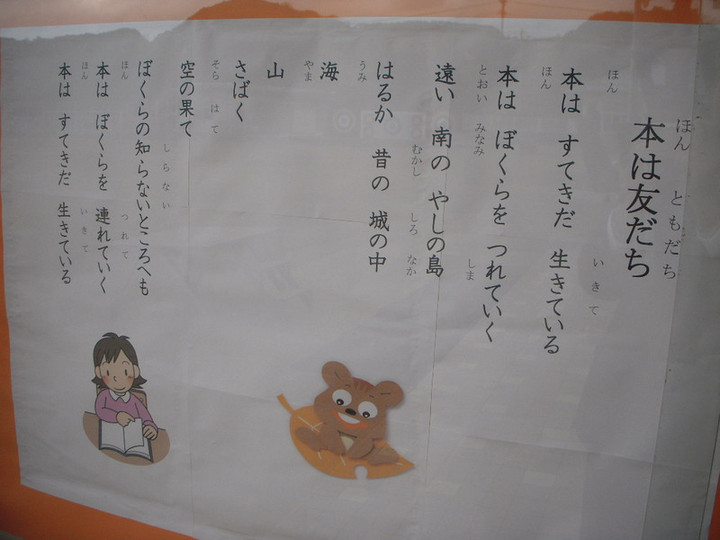 本は友だち
本は すてきだ 生きている
本は ぼくらを つれていく
遠い 南の やしの島
はるか 昔の 城の中
海
山
さばく
空の果て
ぼくらの知らないところへも
本は ぼくらを 連れていく
本は すてきだ 生きている